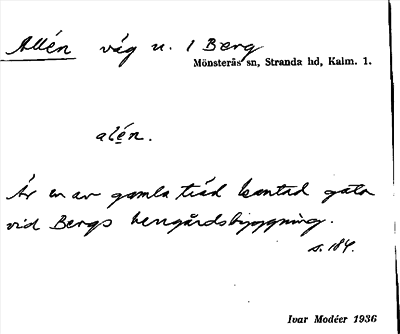 Allén väg n. 1 Berg
Mönsterås sn, Stranda hd, Kalm. l.
alén.
Är en av gamla träd kantad gata
vid Bergs herrgårdsbyggning.
s. 184.
Ivar Modéer 1936